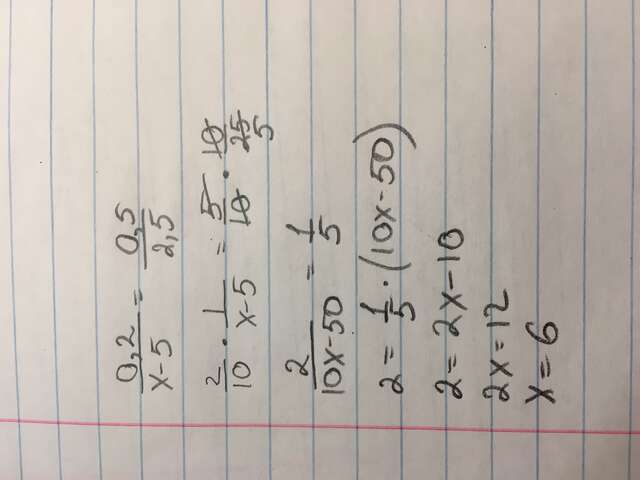 0,2/x-5 = 0,5/2,5
2/10 · 1/x-5 = 5/10 · 10/25 5
2/10x-50 = 1/5
2 = 1/5 · (10x-50)
2 = 2x-10
2x = 12
x = 6